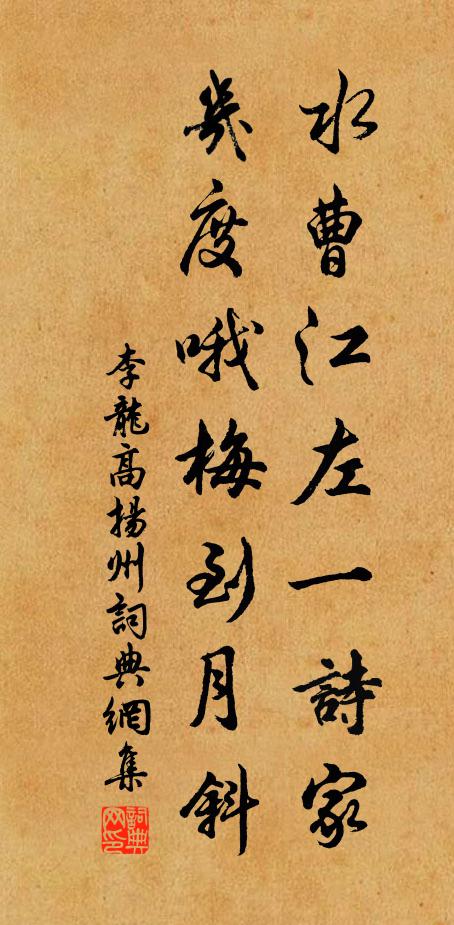 水曹江左一詩家
幾度哦梅到月斜
李龍高揚州詞典網集
詞典网印